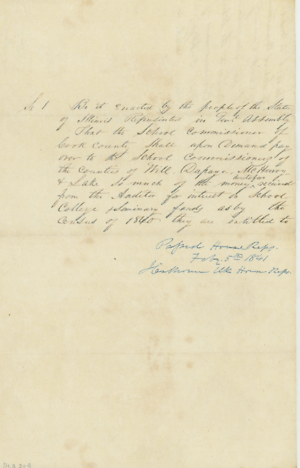 Sec 1 Be it enacted by the people of the State
of Illinois Represented in Genl Assembly
That the School Commissioner of
Cook County Shall upon Demand pay
over to the School Commissioners of
the Counties of Will Dupage McHenry
& Lake So much of the money received
from the Auditor for interest on School,
College & Seminary funds as by the
Census of 1840 they are entitled to
Passed House Reps.
Feby 5th 1841
Clk House Reps